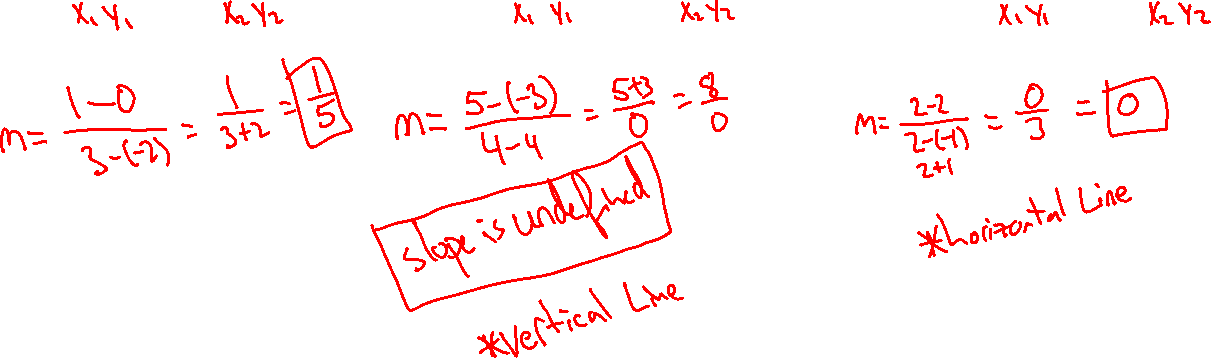 x₁ y₁ x₂ y₂
m = (1 - 0)/(3 - (-2)) = 1/(3+2) = 1/5
x₁ y₁ x₂ y₂
m = (5 - (-3))/(4 - 4) = (5+3)/0 = 8/0
slope is undefined
*vertical Line
x₁ y₁ x₂ y₂
m = (2-2)/(2-(-1)) = 0/3 = 0
2+1
*horizontal Line